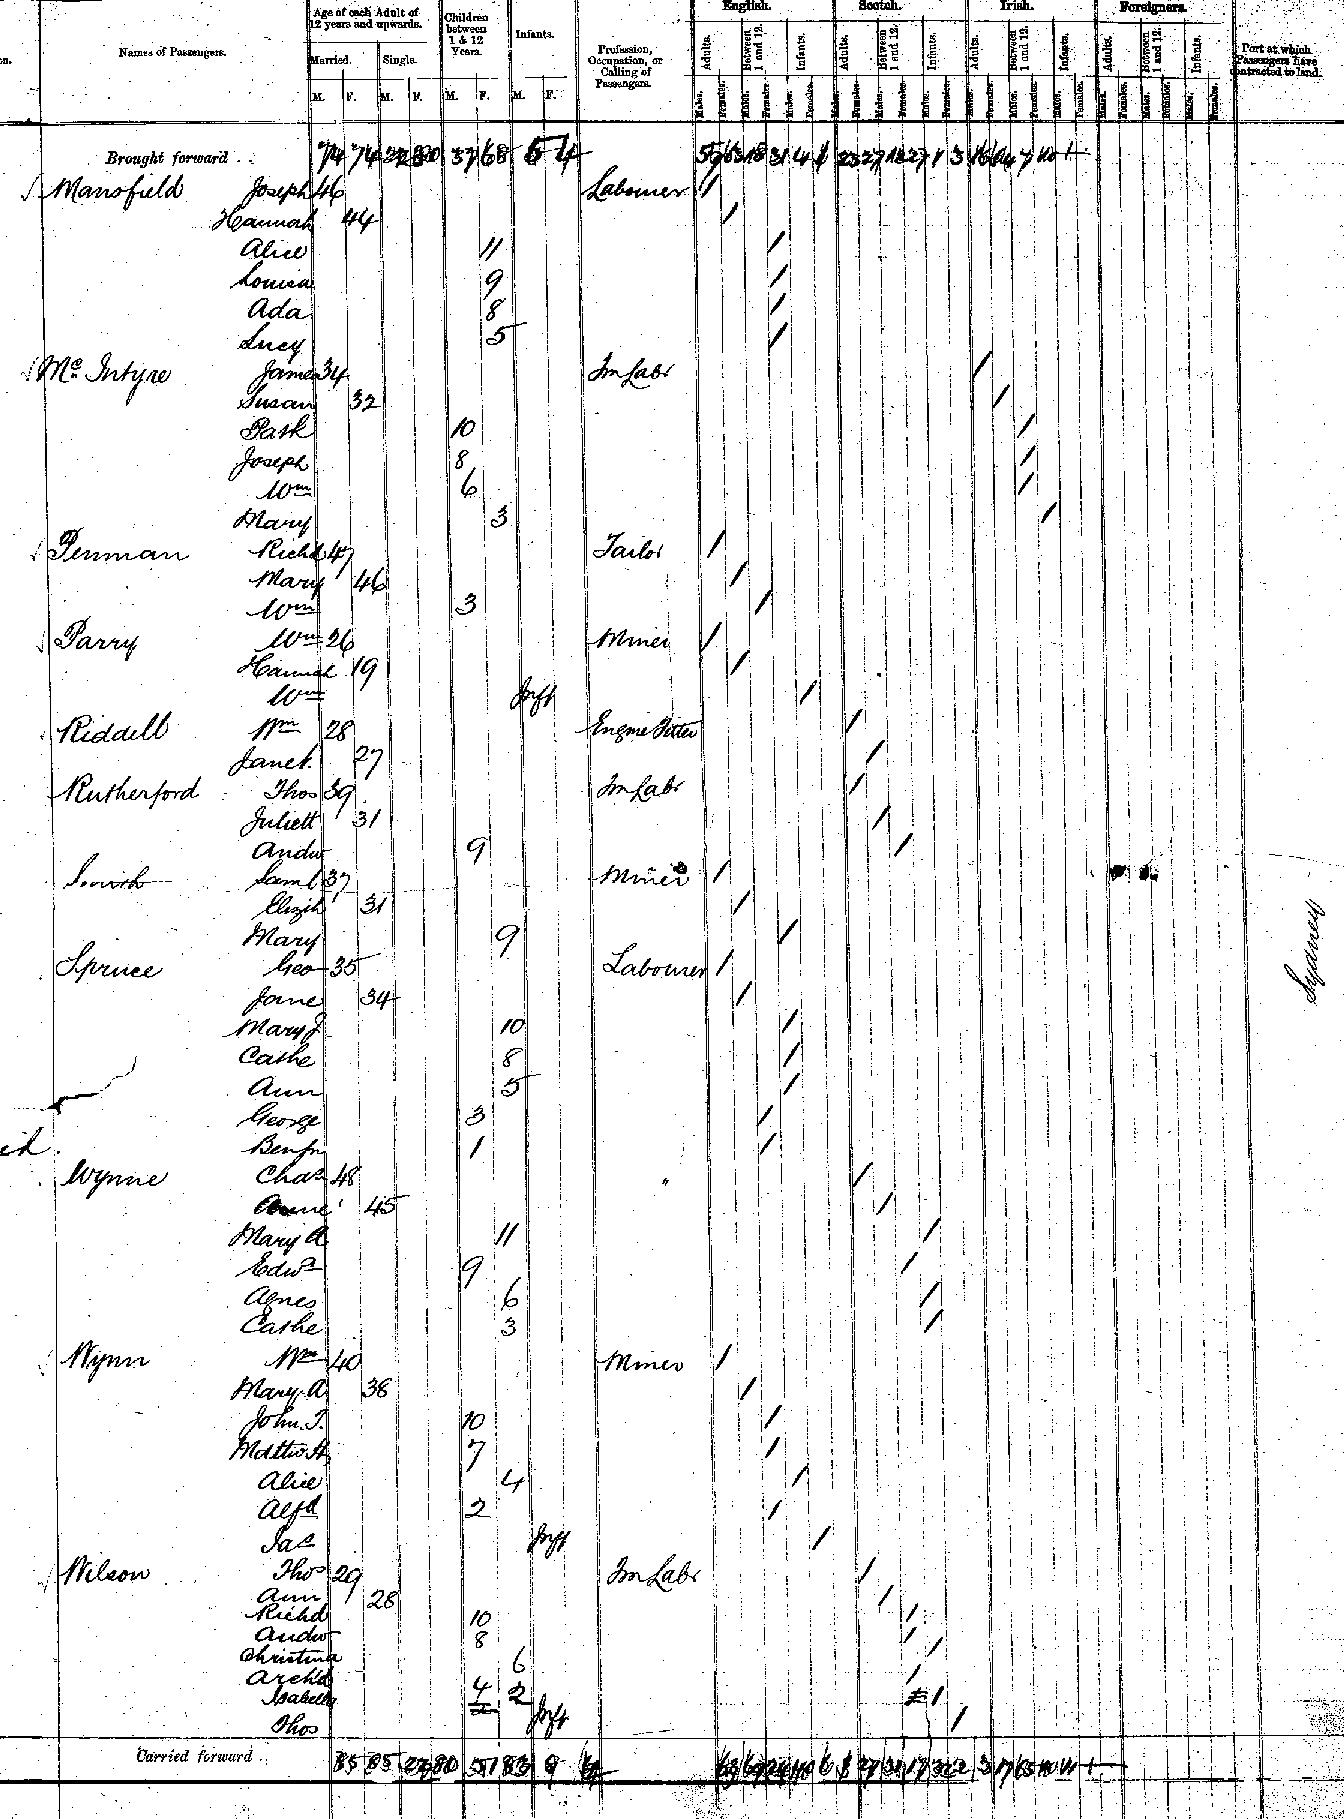 Names of Passengers.
Age of each Adult of 12 years and upwards.
Married. Single.
M. F. M. F.
Children between 1 & 12 Years.
M. F.
Infants.
M. F.
Profession, Occupation, or Calling of Passengers.
English. Scotch. Irish. Foreigners.
Adults. Between 1 and 12. Infants. Adults. Between 1 and 12. Infants. Adults. Between 1 and 12. Infants. Adults. Between 1 and 12. Infants.
Males. Females. Males. Females. Males. Females. Males. Females. Males. Females. Males. Females. Males. Females. Males. Females. Males. Females. Males. Females. Males. Females. Males. Females.
Port at which Passengers have contracted to land.
Brought forward .. 74 74 37 68 5 4
Mansfield Joseph 46 Labourer /
Hannah 44 /
Alice 11 /
Louisa 9 /
Ada 8 /
Lucy 5 /
Mc Intyre James 34 Fm Labr /
Susan 32 /
Patk 10 /
Joseph 8 /
Wm 6 /
Mary 3 /
Penman Richd 47 Tailor /
Mary 46 /
Wm 3 /
Parry Wm 26 Miner /
Hannah 19 /
Wm Inft /
Riddell Wm 28 Engine Fitter /
Janet 27 /
Rutherford Thos 39 Fm Labr /
Juliett 31 /
Andw 9 /
Smith Saml 37 Miner /
Elizth 31 /
Mary 9 /
Spruce Geo 35 Labourer /
Jane 34 /
Mary J. 10 /
Cathe 8 /
Ann 5 /
George 3 /
Benjn 1 /
Wynne Chas 48 " /
Anne 45 /
Mary A 11 /
Edwd 9 /
Agnes 6 /
Cathe 3 /
Wynn Wm 40 Miner /
Mary A 38 /
John T. 10 /
Matthw H. 7 /
Alice 4 /
Alfd 2 /
Jas Inft /
Wilson Thos 29 Fm Labr /
Ann 28 /
Richd 10 /
Andw 8 /
Christina 6 /
Archd 4 /
Isabella 2 /
Thos Inft /
Carried forward .. 85 85 80 51 83 9
Sydney